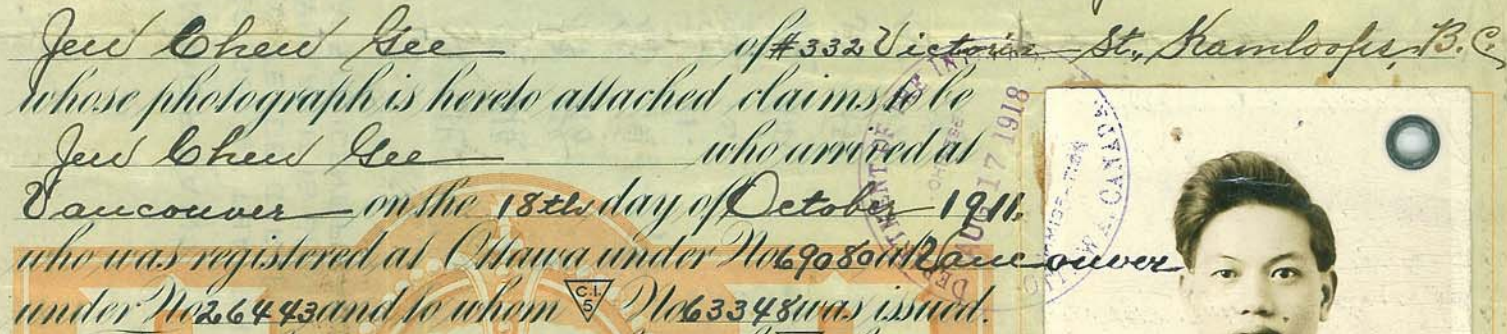 Jew Chew Gee of #332 Victoria St., Kamloops, B.C.
whose photograph is hereto attached claims to be
Jew Chew Gee who arrived at
Vancouver on the 18th day of October 1911.
who was registered at Ottawa under No 69080 at Vancouver
under No 26443 and to whom C.I. 5 No 63348 was issued.
DEPARTMENT OF THE INTERIOR
AUG 17 1918
OTTAWA, CANADA